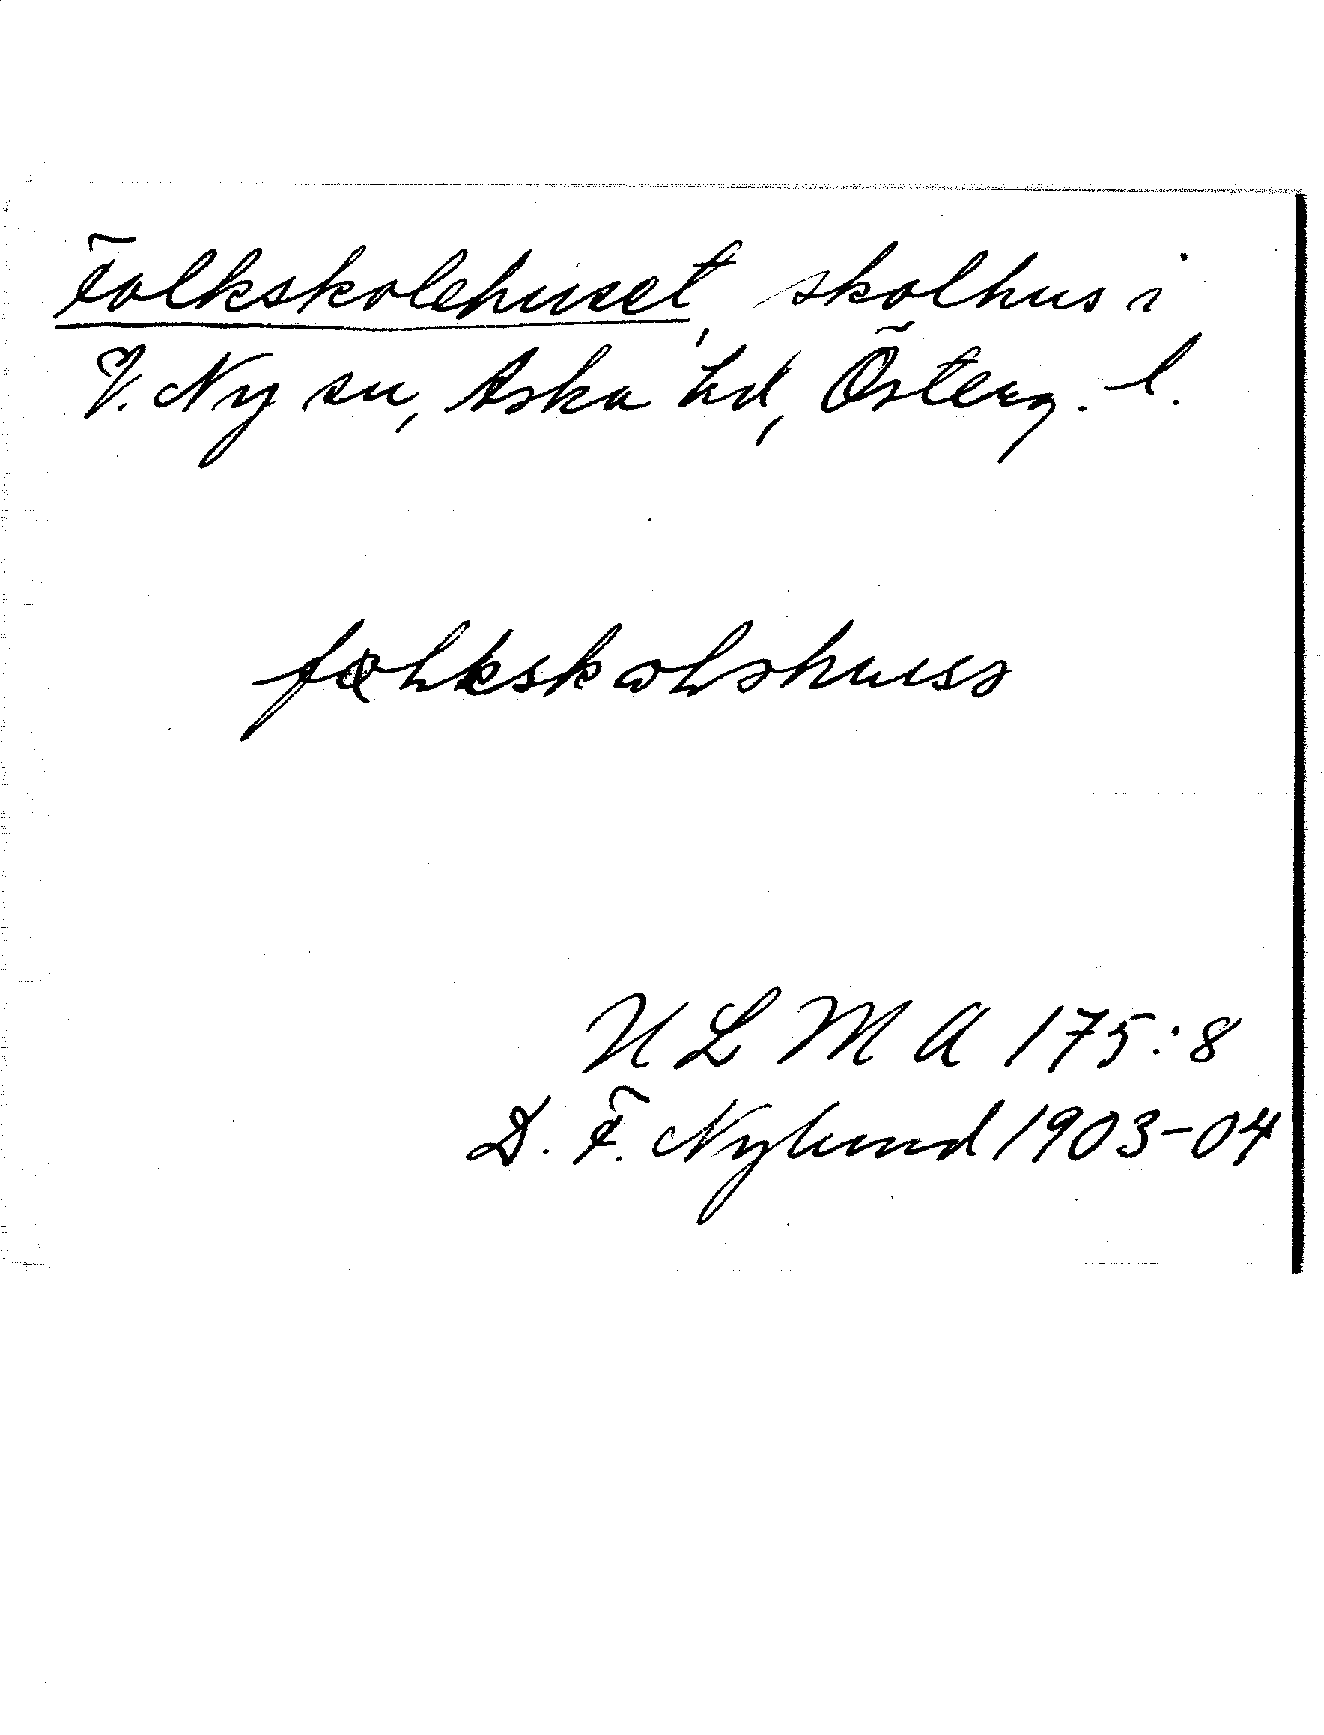 Folkskolehuset, skolhus i
V. Ny sn, Aska hd, Österg. l.
ULMA 175:8
D. F. Nylund 1903-04